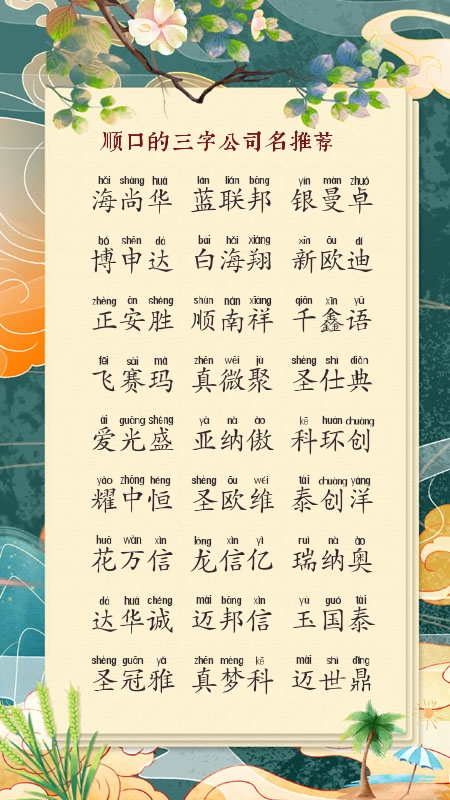 顺口的三字公司名推荐
hǎi shàng huá lán lián bāng yín màn zhuó
海尚华 蓝联邦 银曼卓
bó shēn dá bái hǎi xiáng xīn ōu dí
博申达 白海翔 新欧迪
zhèng ān shèng shùn nán xiáng qiān xīn yǔ
正安胜 顺南祥 千鑫语
fēi sài mǎ zhēn wēi jù shèng shì diǎn
飞赛玛 真微聚 圣仕典
ài guāng shèng yà nà ào kē huán chuàng
爱光盛 亚纳傲 科环创
yào zhōng héng shèng ōu wéi tài chuàng yáng
耀中恒 圣欧维 泰创洋
huā wàn xìn lóng xìn yì ruì nà ào
花万信 龙信亿 瑞纳奥
dá huá chéng mài bāng xìn yù guó tài
达华诚 迈邦信 玉国泰
shèng guān yǎ zhēn mèng kē mài shì dǐng
圣冠雅 真梦科 迈世鼎